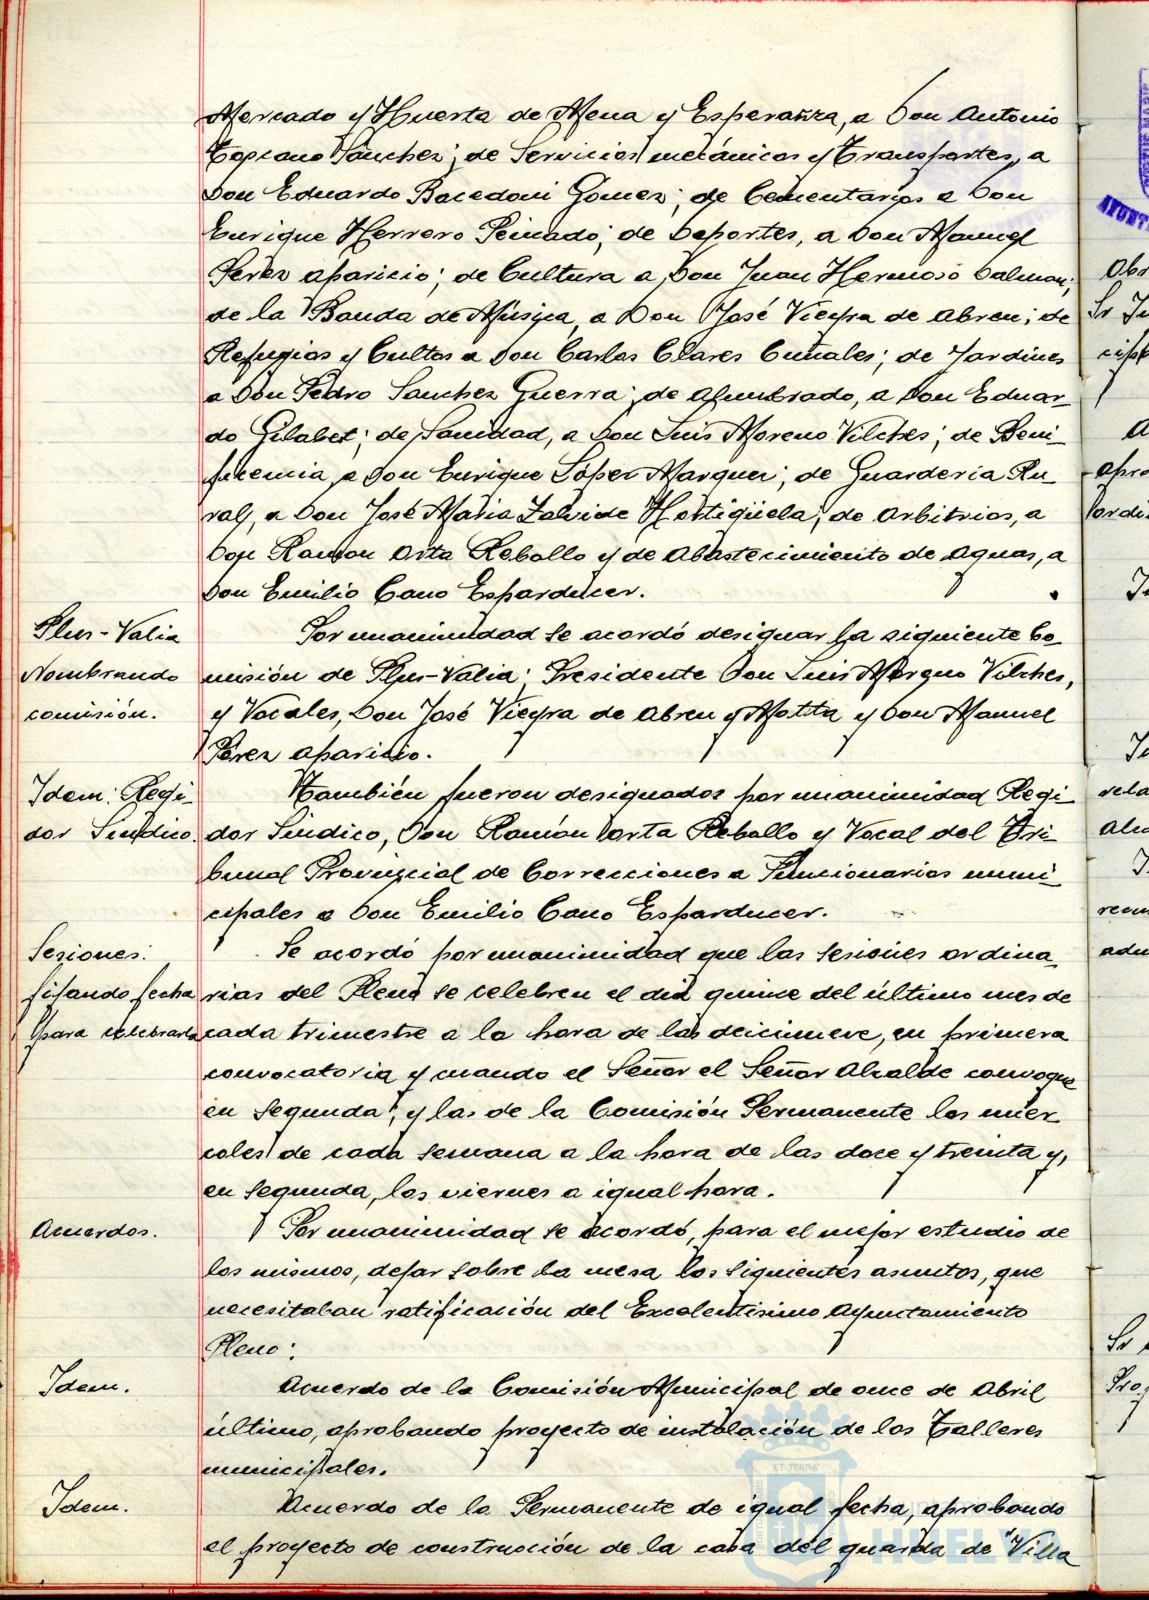 Mercado y Huerta de Mena y Esperanza, a Don Antonio
Toscano Sánchez; de Servicios mecánicos y Transportes, a
Don Eduardo Bacedoni Gomez; de Cementarios a Don
Enrique Herrero Peinado; de Deportes, a Don Manuel
Perez aparicio; de Cultura a Don Juan Hermoso Dalmau;
de la Banda de Música, a Don José Vieyra de Abreu; de
Refugios y Cultos a Don Carlos Clares Cunales; de Jardines
a Don Pedro Sanchez Guerra; de alumbrado, a Don Eduar-
do Gilabet; de Sanidad, a Don Luis Moreno Vilches; de Beni-
ficencia, a Don Enrique López Marquez; de Guarderia Ru-
ral, a Don José Maria Zalvide Hortigüela; de arbitrios, a
Don Ramon Orta Rebollo y de abastecimiento de aguas, a
Don Emilio Cano Esparducer.
Plus-Valia
Nombrando
comisión.
Por unanimidad se acordó designar la siguiente Co-
misión de Plus-Valia: Presidente Don Luis Vilches,
y Vocales, Don José Vieyra de Abreu y y Don Manuel
Perez aparicio.
Idem: Regi-
dor Sindico.
También fueron designados por unanimidad Regi-
dor Sindico, Don Ramón orta Rebollo y Vocal del Tri-
bunal Provincial de Correcciones a Funcionarios muni-
cipales a Don Emilio Cano Esparducer.
Sesiones:
fijando fecha
para celebrarla
Se acordó por unanimidad que las sesiones ordina-
rias del Pleno se celebren el dia quince del último mes de
cada trimestre a la hora de las deicinueve, en primera
convocatoria y cuando el Señor el Señor Alcalde convoque
en segunda, y las de la Comisión Permanente los miér-
coles de cada semana a la hora de las doce y treinta y,
en segunda, los viernes a igual hora.
Acuerdos.
Por unanimidad se acordó, para el mejor estudio de
los mismos, dejar sobre la mesa los siguientes asuntos, que
necesitaban ratificación del Excelentisimo Ayuntamiento
Pleno:
Idem.
Acuerdo de la Comisión Municipal de once de Abril
último, aprobando proyecto de instalación de los Talleres
municipales.
Idem.
Acuerdo de la Permanente de igual fecha, aprobando
el proyecto de construcción de la casa del guarda de "Villa